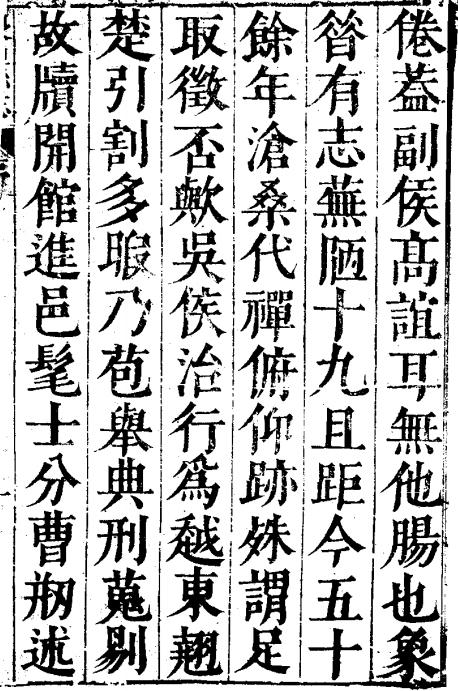 倦蓋副侯高誼耳無他腸也象
㫺有志蕪陋十九且距今五十
餘年滄桑代禪俯仰跡殊謂足
取徵否歟吳侯治行爲越東翹
楚引割多暇乃苞舉典刑蒐剔
故牘開館進邑髦士分曹刱述